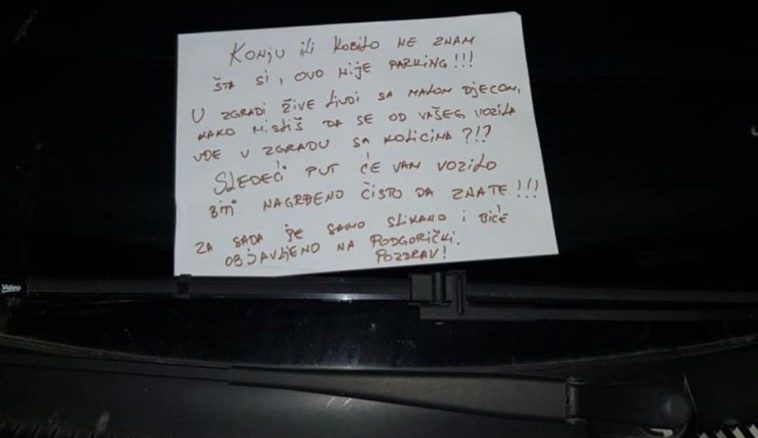 KONJU ILI KOZILO NE ZNAM
ŠTA SI, OVO NIJE PARKING!!!
U ZGRADI ŽIVE LJUDI SA MALOM DJECOM,
KAKO MISLIŠ DA SE OD VAŠEG VOZILA
UĐE U ZGRADU SA KOLICIMA?!?
SLEDEĆI PUT ĆE VAM VOZILO
BITI NAGRĐENO ČISTO DA ZNATE!!!
ZA SADA JE SAMO SLIKANO I BIĆE
OBJAVLJENO NA PODGORIČKI.
POZDRAV!
Valeo